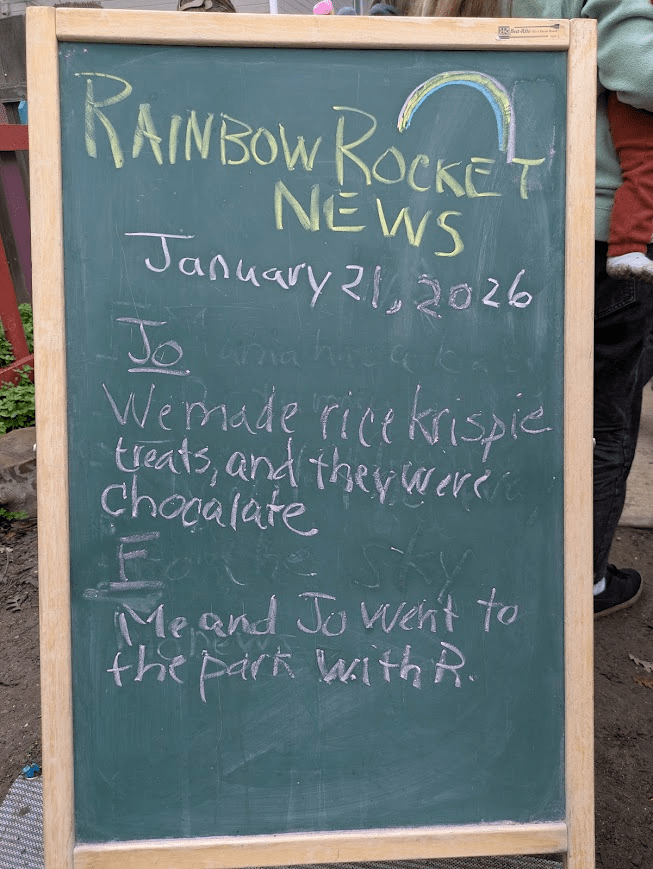 RAINBOW ROCKET
NEWS
January 21, 2026
Jo
We made rice krispie
treats, and they were
chocalate
F
Me and Jo went to
the park with R.